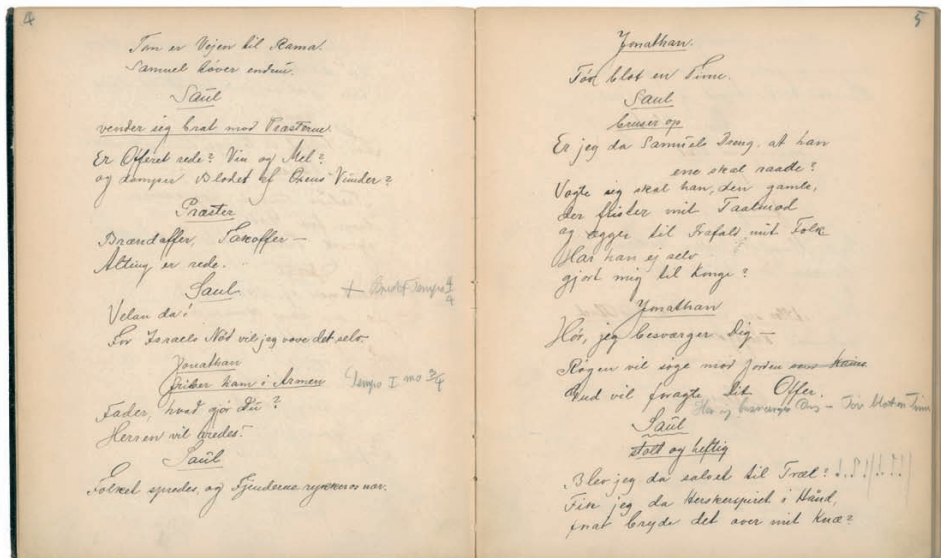 4
Tom er Vejen til Rama.
Samuel tøver endnu.
Saul
vender sig brat mod Præsterne.
Er Offeret rede? Vin og Mel?
og damper Blodet af Oxens Vunder?
Præster
Brændoffer, Takoffer —
Alting er rede.
Saul
+ Tempo 4/4
Velan da!
For Israels Nød vil jeg vove det selv.
Jonathan
griber ham i Armen
Tempo I mo 3/4
Fader, hvad gjør Du?
Herren vil vredes!
Saul
Folket spredes, og Fjenderne rykker os nær.
5
Jonathan.
Tøv blot en Time.
Saul
bruser op
Er jeg da Samuels Dreng, at han
ene skal raade?
Vogte sig skal han, den gamle,
der frister mit Taalmod
og ægger til Frafald mit Folk
Har han ej selv
gjort mig til Konge?
Jonathan
Hør, jeg besværger Dig —
Røgen vil søge mod Jorden som Kains
Gud vil foragte Dit Offer.
Hør jeg besværger Dig — Tøv blot en Time
Saul
stolt og heftig
Blev jeg da salvet til Træl?
Fik jeg da Herskerspiret i Hånd,
for at bryde det over mit Knæ?